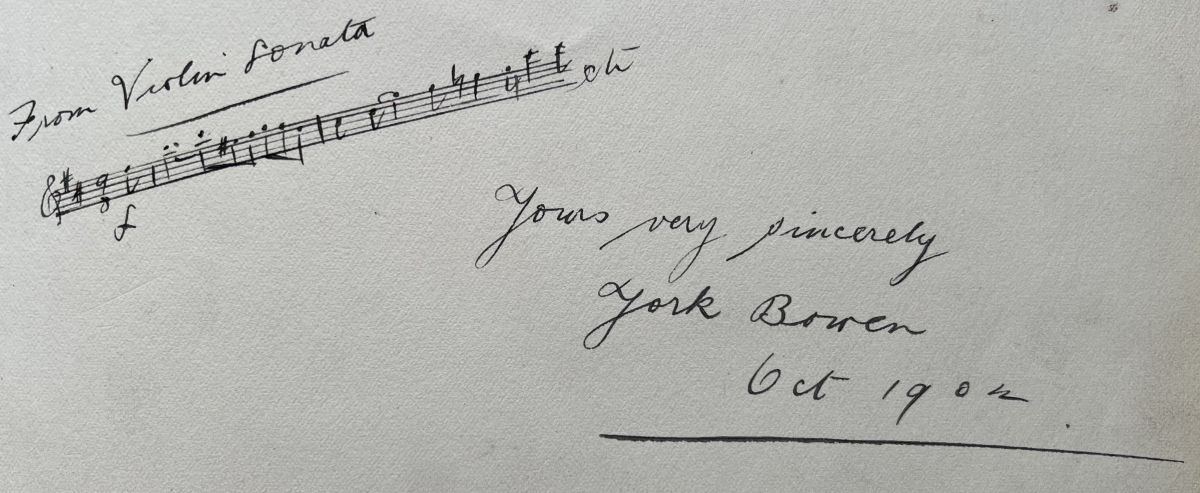 From Violin Sonata
9
8
f
etc
Yours very sincerely
York Bowen
Oct 1902